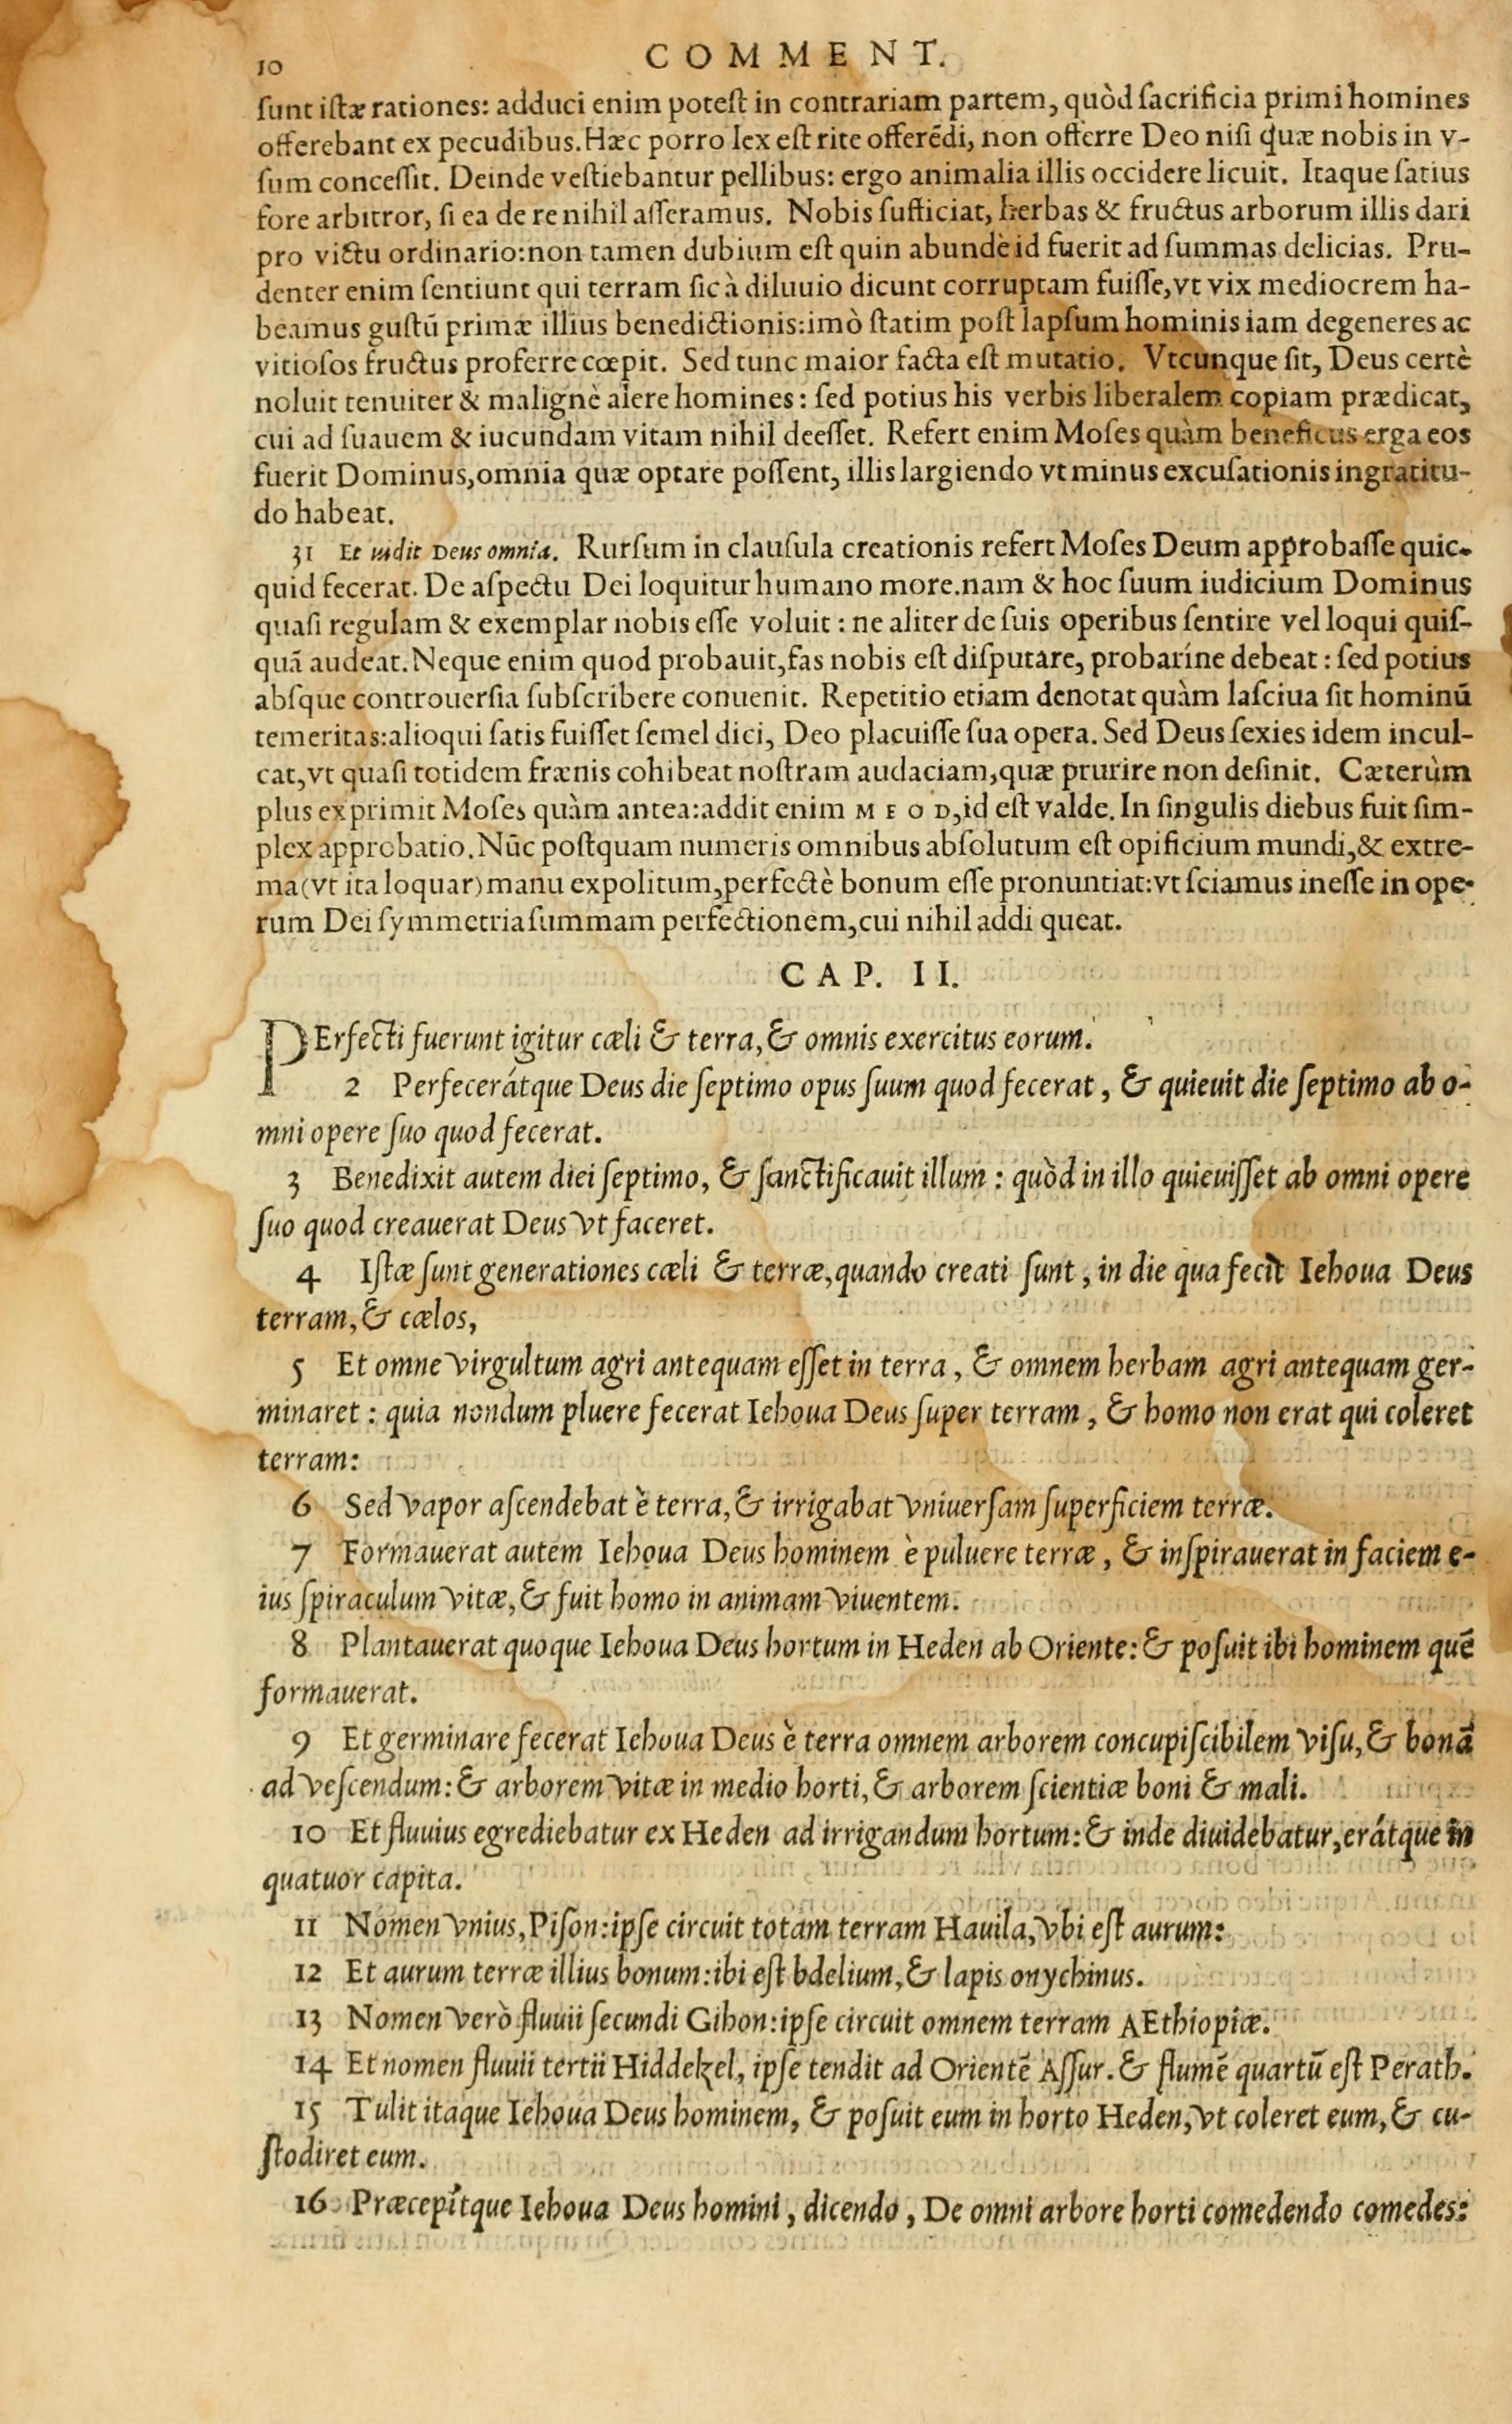 10 COMMENT.
sunt istæ rationes: adduci enim potest in contrariam partem, quòd sacrificia primi homines
offerebant ex pecudibus. Hæc porro lex est rite offerẽdi, non offerre Deo nisi quæ nobis in v-
sum concessit. Deinde vestiebantur pellibus: ergo animalia illis occidere licuit. Itaque satius
fore arbitror, si ea de re nihil asseramus. Nobis sufficiat, herbas & fructus arborum illis dari
pro victu ordinario: non tamen dubium est quin abundè id fuerit ad summas delicias. Pru-
denter enim sentiunt qui terram sic à diluuio dicunt corruptam fuisse, vt vix mediocrem ha-
beamus gustũ primæ illius benedictionis: imò statim post lapsum hominis iam degeneres ac
vitiosos fructus proferre cœpit. Sed tunc maior facta est mutatio. Vtcunque sit, Deus certè
noluit tenuiter & malignè alere homines: sed potius his verbis liberalem copiam prædicat,
cui ad suauem & iucundam vitam nihil deesset. Refert enim Moses quàm beneficus erga eos
fuerit Dominus, omnia quæ optare possent, illis largiendo vt minus excusationis ingratitu-
do habeat.
31 Et uidit Deus omnia. Rursum in clausula creationis refert Moses Deum approbasse quic-
quid fecerat. De aspectu Dei loquitur humano more. nam & hoc suum iudicium Dominus
quasi regulam & exemplar nobis esse voluit: ne aliter de suis operibus sentire vel loqui quis-
quã audeat. Neque enim quod probauit, fas nobis est disputare, probaríne debeat: sed potius
absque controuersia subscribere conuenit. Repetitio etiam denotat quàm lasciua sit hominũ
temeritas: alioqui satis fuisset semel dici, Deo placuisse sua opera. Sed Deus sexies idem incul-
cat, vt quasi totidem frænis cohibeat nostram audaciam, quæ prurire non desinit. Cæterùm
plus exprimit Moses quàm antea: addit enim MEOD, id est valde. In singulis diebus fuit sim-
plex approbatio. Nũc postquam numeris omnibus absolutum est opificium mundi, & extre-
ma (vt ita loquar) manu expolitum, perfectè bonum esse pronuntiat: vt sciamus inesse in ope-
rum Dei symmetria summam perfectionem, cui nihil addi queat.
CAP. II.
PErfecti fuerunt igitur cæli & terra, & omnis exercitus eorum.
2 Perfecerátque Deus die septimo opus suum quod fecerat, & quieuit die septimo ab o-
mni opere suo quod fecerat.
3 Benedixit autem diei septimo, & sanctificauit illum: quòd in illo quieuisset ab omni opere
suo quod creauerat Deus vt faceret.
4 Istæ sunt generationes cæli & terræ, quando creati sunt, in die qua fecit Iehoua Deus
terram, & cælos,
5 Et omne virgultum agri antequam esset in terra, & omnem herbam agri antequam ger-
minaret: quia nondum pluere fecerat Iehoua Deus super terram, & homo non erat qui coleret
terram:
6 Sed vapor ascendebat è terra, & irrigabat vniuersam superficiem terræ.
7 Formauerat autem Iehoua Deus hominem è puluere terræ, & inspirauerat in faciem e-
ius spiraculum vitæ, & fuit homo in animam viuentem.
8 Plantauerat quoque Iehoua Deus hortum in Heden ab Oriente: & posuit ibi hominem quẽ
formauerat.
9 Et germinare fecerat Iehoua Deus è terra omnem arborem concupiscibilem visu, & bonã
ad vescendum: & arborem vitæ in medio horti, & arborem scientiæ boni & mali.
10 Et fluuius egrediebatur ex Heden ad irrigandum hortum: & inde diuidebatur, erátque in
quatuor capita.
11 Nomen vnius, Pison: ipse circuit totam terram Hauila, vbi est aurum:
12 Et aurum terræ illius bonum: ibi est bdelium, & lapis onychinus.
13 Nomen verò fluuii secundi Gihon: ipse circuit omnem terram AEthiopiæ.
14 Et nomen fluuii tertii Hiddekel, ipse tendit ad Orientẽ Assur. & flumẽ quartũ est Perath.
15 Tulit itaque Iehoua Deus hominem, & posuit eum in horto Heden, vt coleret eum, & cu-
stodiret eum.
16 Præcepítque Iehoua Deus homini, dicendo, De omni arbore horti comedendo comedes: